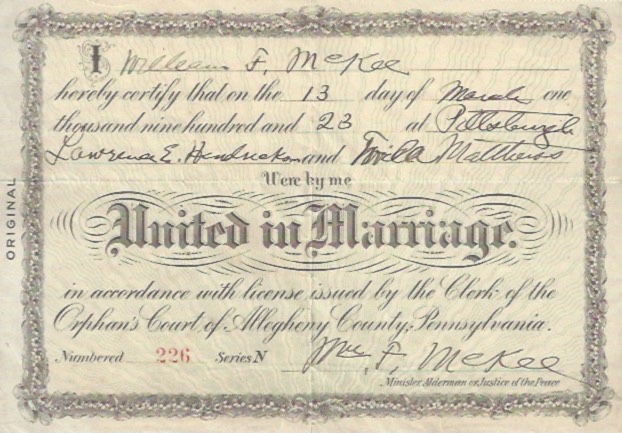 I William F. McKee
hereby certify that on the 13 day of March one
thousand nine hundred and 23 at Pittsburgh
Lawrence E. Hendrickson and Matthews
Were by me
United in Marriage.
in accordance with license issued by the Clerk of the
Orphan's Court of Allegheny County, Pennsylvania.
Numbered 226 Series N Wm. F. McKee
Minister Alderman or Justice of the Peace
ORIGINAL